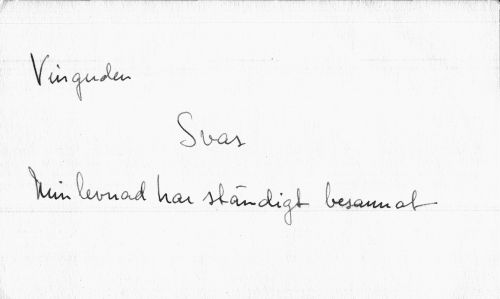 Vinguden
Svar
Min levnad har ständigt besannat